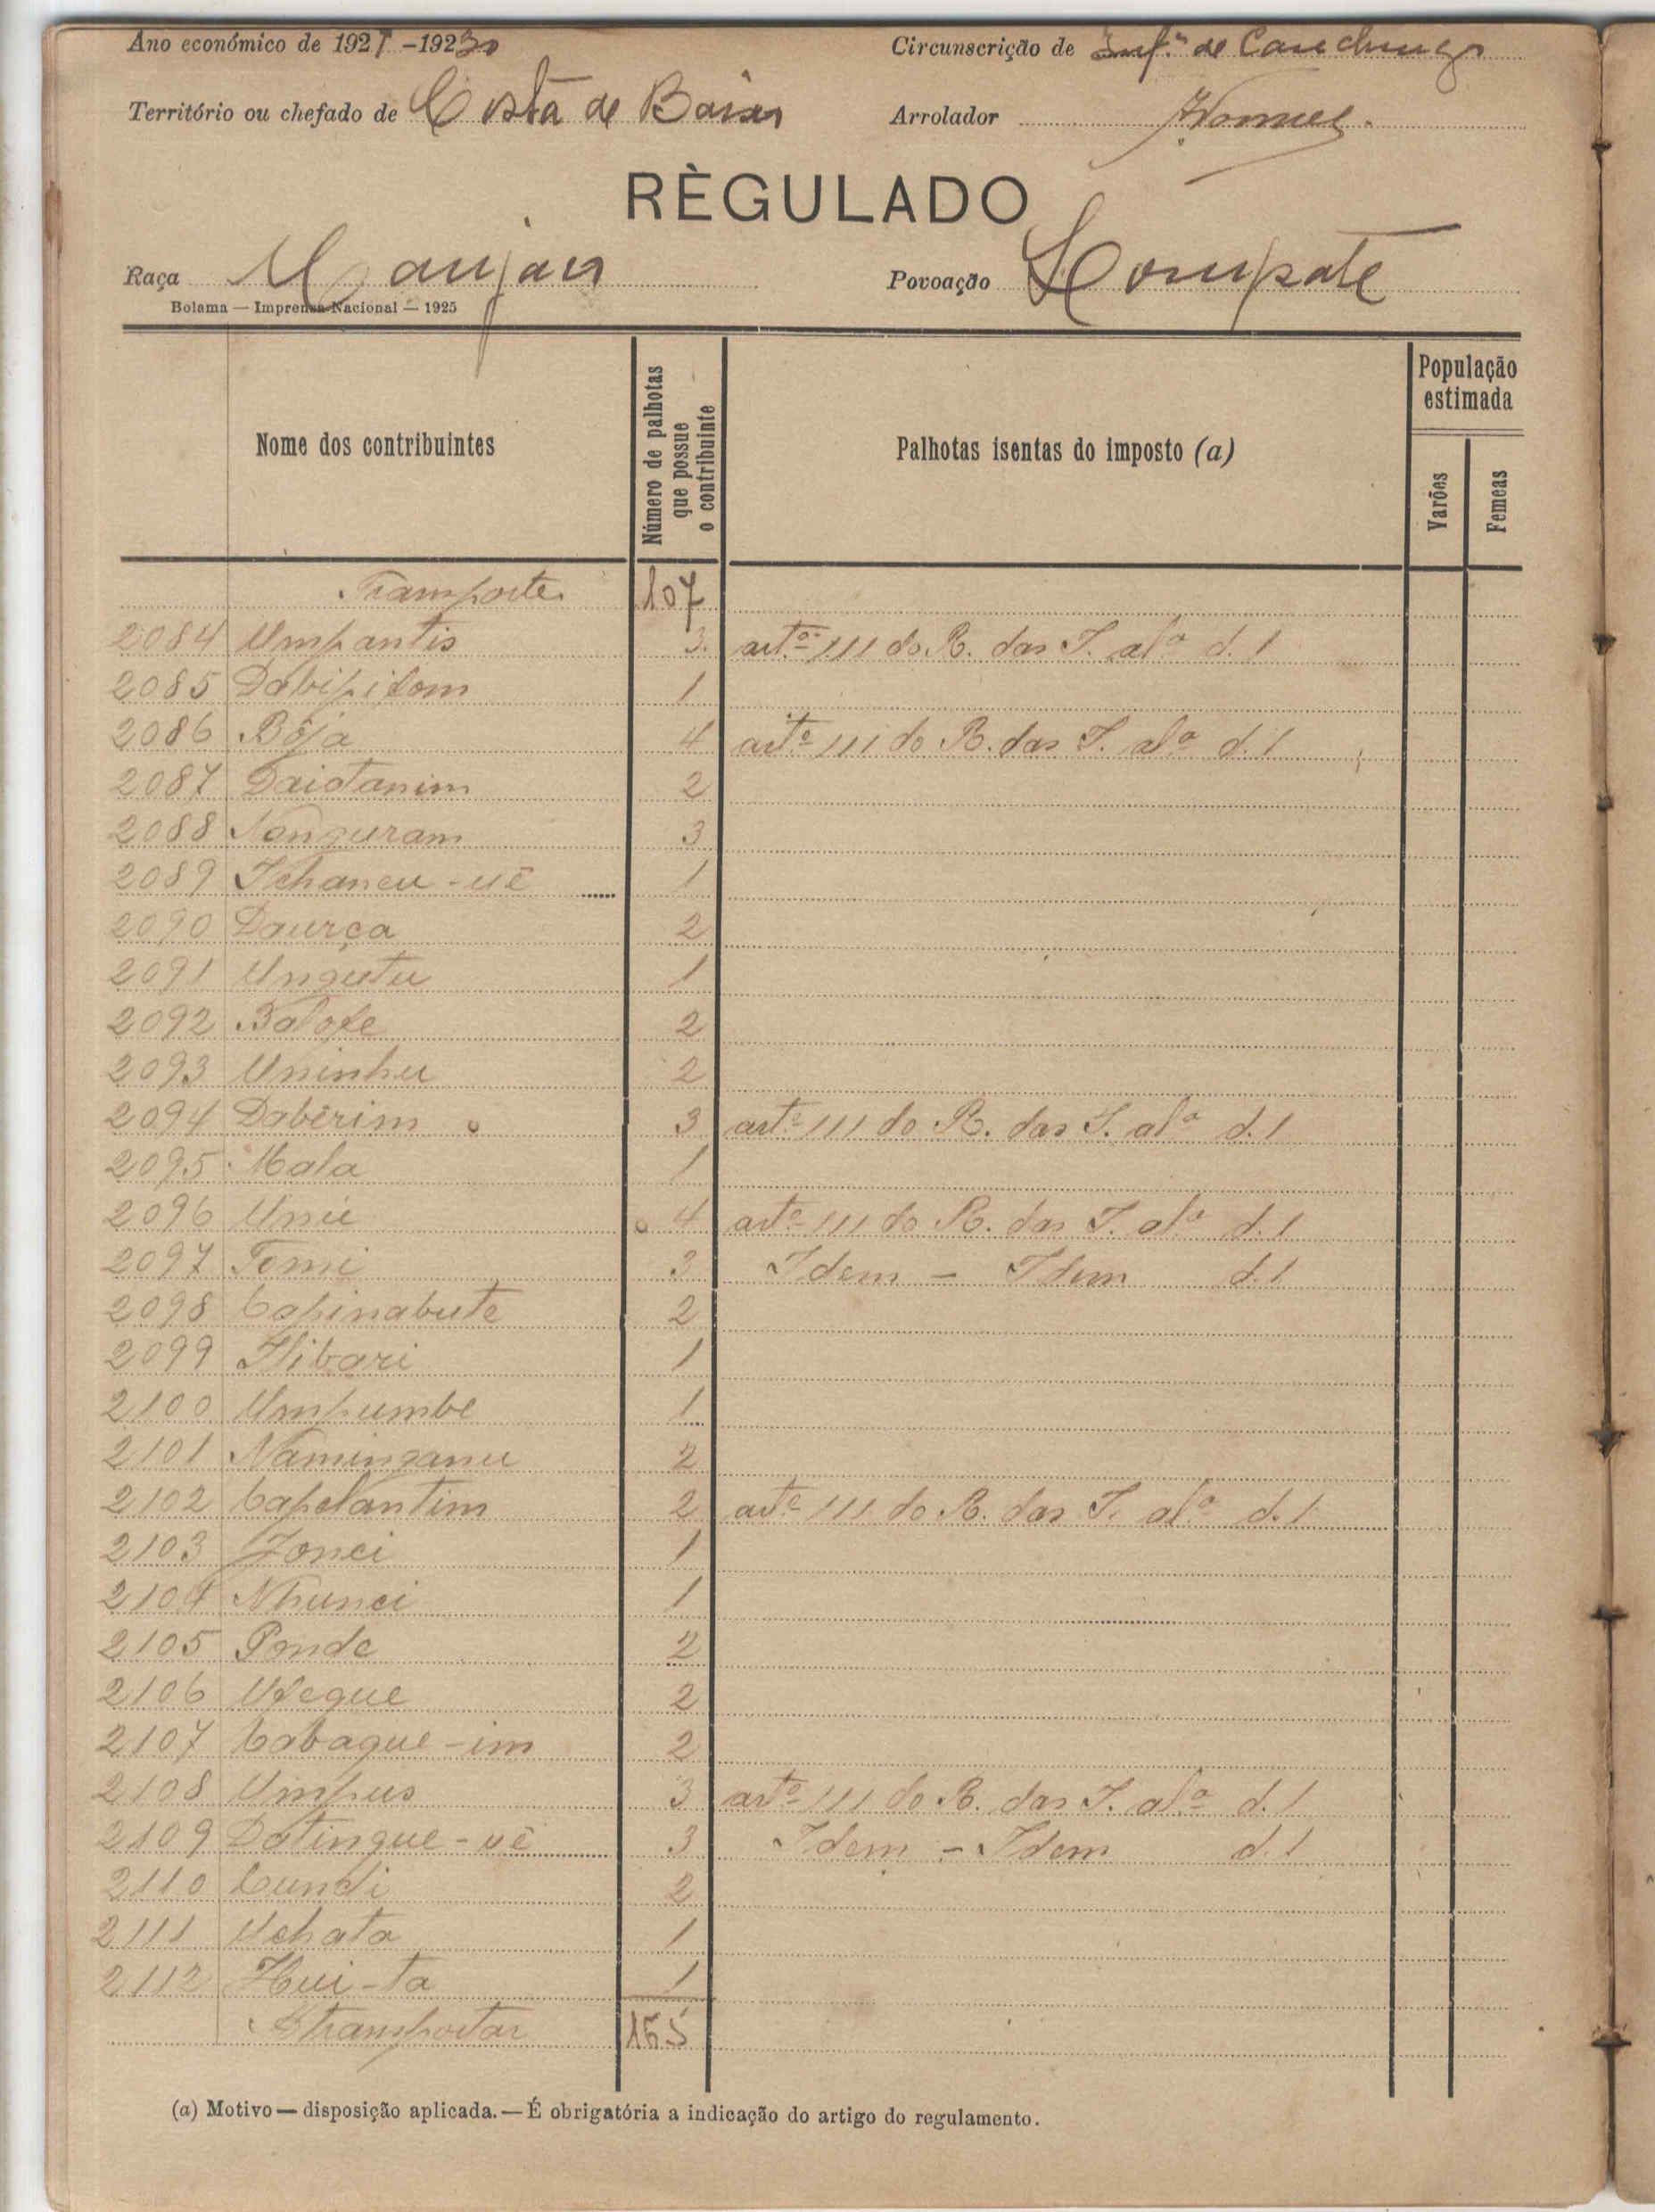 Ano económico de 1921 -19230 Circunscrição de Inf.ª de Canchungo
Território ou chefado de Costa de Baixo Arrolador
RÈGULADO
Raça Manjaca Povoação
Bolama — Imprensa Nacional — 1925
Nome dos contribuintes
Número de palhotas que possue o contribuinte
Palhotas isentas do imposto (a)
População estimada
Varões
Femeas
Transporte 107
2084 Umpantis 3 artº 111 do R. das I. alª d.1
2085 Dabipilom 1
2086 Bója 4 artº 111 do R. das I. alª d.1
2087 Daidanim 2
2088 Nonguram 3
2089 Ichaneu-uê 1
2090 Daurça 2
2091 Ungutu 1
2092 Batofe 2
2093 Uninhu 2
2094 Dabêrim 3 artº 111 do R. das I. alª d.1
2095 Mala 1
2096 Unie 4 artº 111 do R. das I. alª d.1
2097 Tomi 3 Idem - Idem d.1
2098 Capinabute 2
2099 Ilibari 1
2100 Umpumbe 1
2101 Naminganu 2
2102 Capelantim 2 artº 111 do R. das I. alª d.1
2103 Jonci 1
2104 Nhunci 1
2105 Ponde 2
2106 Ufegue 2
2107 Cabague-im 2
2108 Umpus 3 artº 111 do R. das I. alª d.1
2109 Datingue-uê 3 Idem - Idem d.1
2110 Cundi 2
2111 Uchata 1
2112 Hui-ta 1
A transportar 165
(a) Motivo — disposição aplicada. — É obrigatória a indicação do artigo do regulamento.